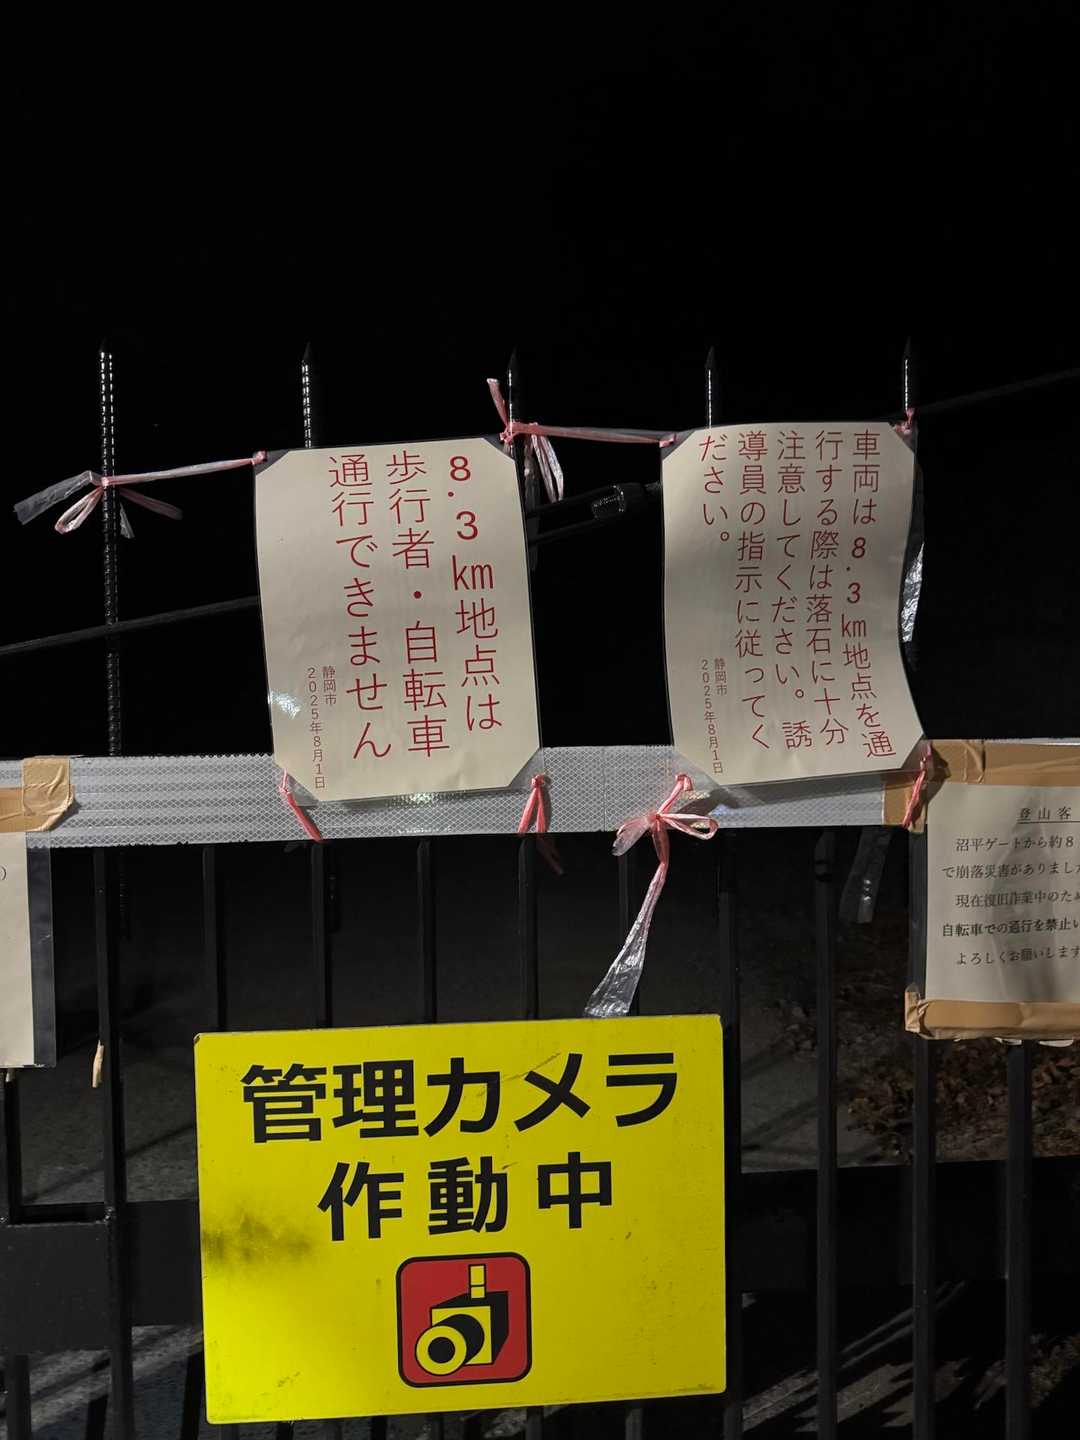 8.3km地点は
歩行者・自転車
通行できません
静岡市
2025年8月1日
車両は8.3km地点を通
行する際は落石に十分
注意してください。誘
導員の指示に従ってく
ださい。
静岡市
2025年8月1日
)
登山客
沼平ゲートから約8
で崩落災害がありまし
現在復旧作業中のため
自転車での通行を禁止い
よろしくお願いします
管理カメラ
作動中